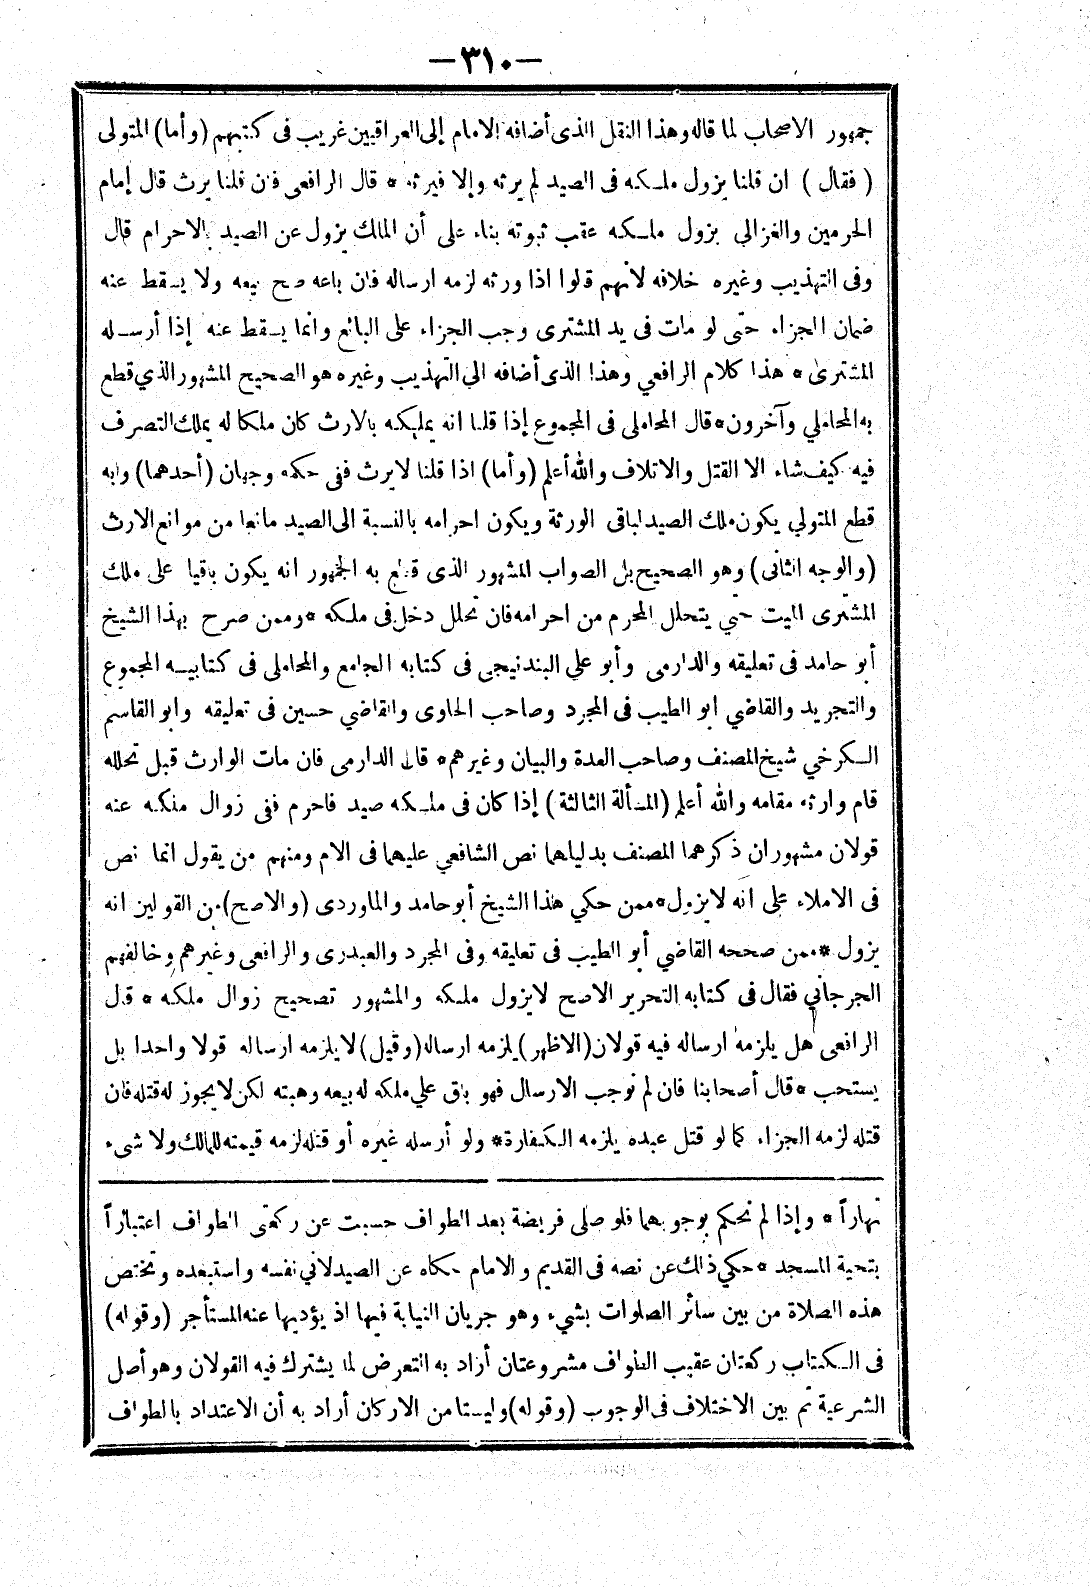 —٣١٠—
جمهور الاصحاب لما قاله وهذا النقل الذى أضافه الامام إلى العراقيين غريب فى كتبهم (وأما) المتولى
(فقال) ان قلنا يزول ملكه فى الصيد لم يرثه وإلا فيرثه * قال الرافعى فان قلنا يرث قال إمام
الحرمين والغزالي يزول ملكه عقب ثبوته بناء على أن الملك يزول عن الصيد بالاحرام قال
وفى التهذيب وغيره خلافه لأنهم قالوا اذا ورثه لزمه ارساله فان باعه صح بيعه ولا يسقط عنه
ضمان الجزاء حتى لو مات فى يد المشترى وجب الجزاء على البائع وانما يسقط عنه إذا أرسله
المشترى * هذا كلام الرافعي وهذا الذى أضافه الي التهذيب وغيره هو الصحيح المشهور الذي قطع
به المحاملي وآخرون * قال المحاملى فى المجموع إذا قلنا انه يملكه بالارث كان ملكا له يملك التصرف
فيه كيف شاء الا القتل والاتلاف والله أعلم (وأما) اذا قلنا لا يرث ففى حكمه وجهان (أحدهما) وبه
قطع المتولي يكون ملك الصيد لباقى الورثة ويكون احرامه بالنسبة الى الصيد مانعا من موانع الارث
(والوجه الثانى) وهو الصحيح بل الصواب المشهور الذى قطع به الجمهور انه يكون باقيا على ملك
المشترى الميت حتي يتحلل المحرم من احرامه فان تحلل دخل فى ملكه * وممن صرح بهذا الشيخ
أبو حامد فى تعليقه والدارمى وأبو علي البندنيجى فى كتابه الجامع والمحاملى فى كتابيه المجموع
والتجريد والقاضي ابو الطيب فى المجرد وصاحب الحاوى والقاضي حسين فى تعليقه وابو القاسم
الكرخي شيخ المصنف وصاحب العدة والبيان وغيرهم * قال الدارمى فان مات الوارث قبل تحلله
قام وارثه مقامه والله أعلم (المسألة الثالثة) إذا كان فى ملكه صيد فاحرم ففى زوال ملكه عنه
قولان مشهوران ذكرهما المصنف بدليلهما نص الشافعي عليهما فى الام ومنهم من يقول انما نص
فى الاملاء على انه لا يزول * ممن حكي هذا الشيخ أبو حامد والماوردى (والاصح) من القولين انه
يزول * ممن صححه القاضي أبو الطيب فى تعليقه وفى المجرد والعبدرى والرافعى وغيرهم وخالفهم
الجرجاني فقال فى كتابه التحرير الاصح لا يزول ملكه والمشهور تصحيح زوال ملكه * قال
الرافعى هل يلزمه ارساله فيه قولان (الاظهر) يلزمه ارساله (وقيل) لا يلزمه ارساله قولا واحدا بل
يستحب * قال أصحابنا فان لم نوجب الارسال فهو باق علي ملكه له بيعه وهبته لكن لا يجوز له قتله فان
قتله لزمه الجزاء كما لو قتل عبده يلزمه الكفارة * ولو أرسله غيره أو قتله لزمه قيمته للمالك ولا شىء
نهاراً * وإذا لم نحكم بوجوبهما فلو صلى فريضة بعد الطواف حسبت عن ركعتى الطواف اعتباراً
بتحية المسجد * حكي ذلك عن نصه فى القديم والامام حكاه عن الصيدلاني نفسه واستبعده وتختص
هذه الصلاة من بين سائر الصلوات بشيء وهو جريان النيابة فيها اذ يؤديها عنه المستأجر (وقوله)
فى الكتاب ركعتان عقيب الطواف مشروعتان أراد به التعرض لما يشترك فيه القولان وهو أصل
الشرعية ثم بين الاختلاف فى الوجوب (وقوله) وليستا من الاركان أراد به أن الاعتداد بالطواف